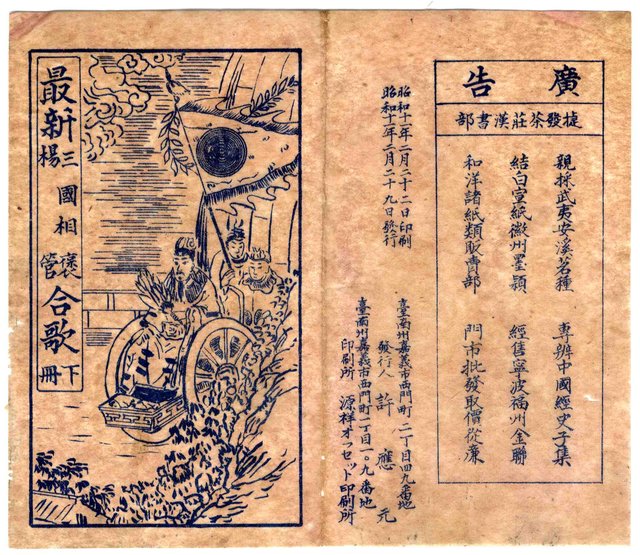 廣告
捷發茶莊漢書部
親採武夷安溪茗種 專辦中國經史子集
結白宣紙徽州墨穎 經售寧波福州金聯
和洋諸紙類販賣部 門市批發取價從廉
昭和十一年二月二十二日印刷
昭和十一年二月二十九日發行
臺南州嘉義市西門町二丁目四九番地
發行人 許應元
臺南州嘉義市西門町二丁目一〇九番地
印刷所 源祥オフセット印刷所
最新
三國相褒
楊管
合歌
下冊